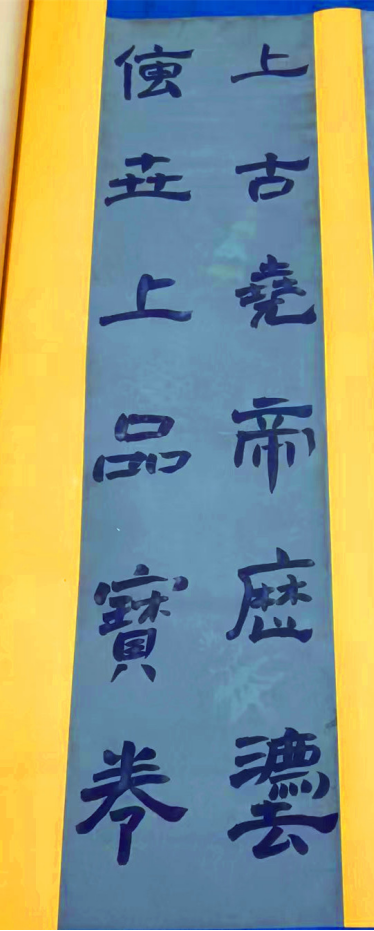 上古堯帝歷灋
傳世上品寶卷